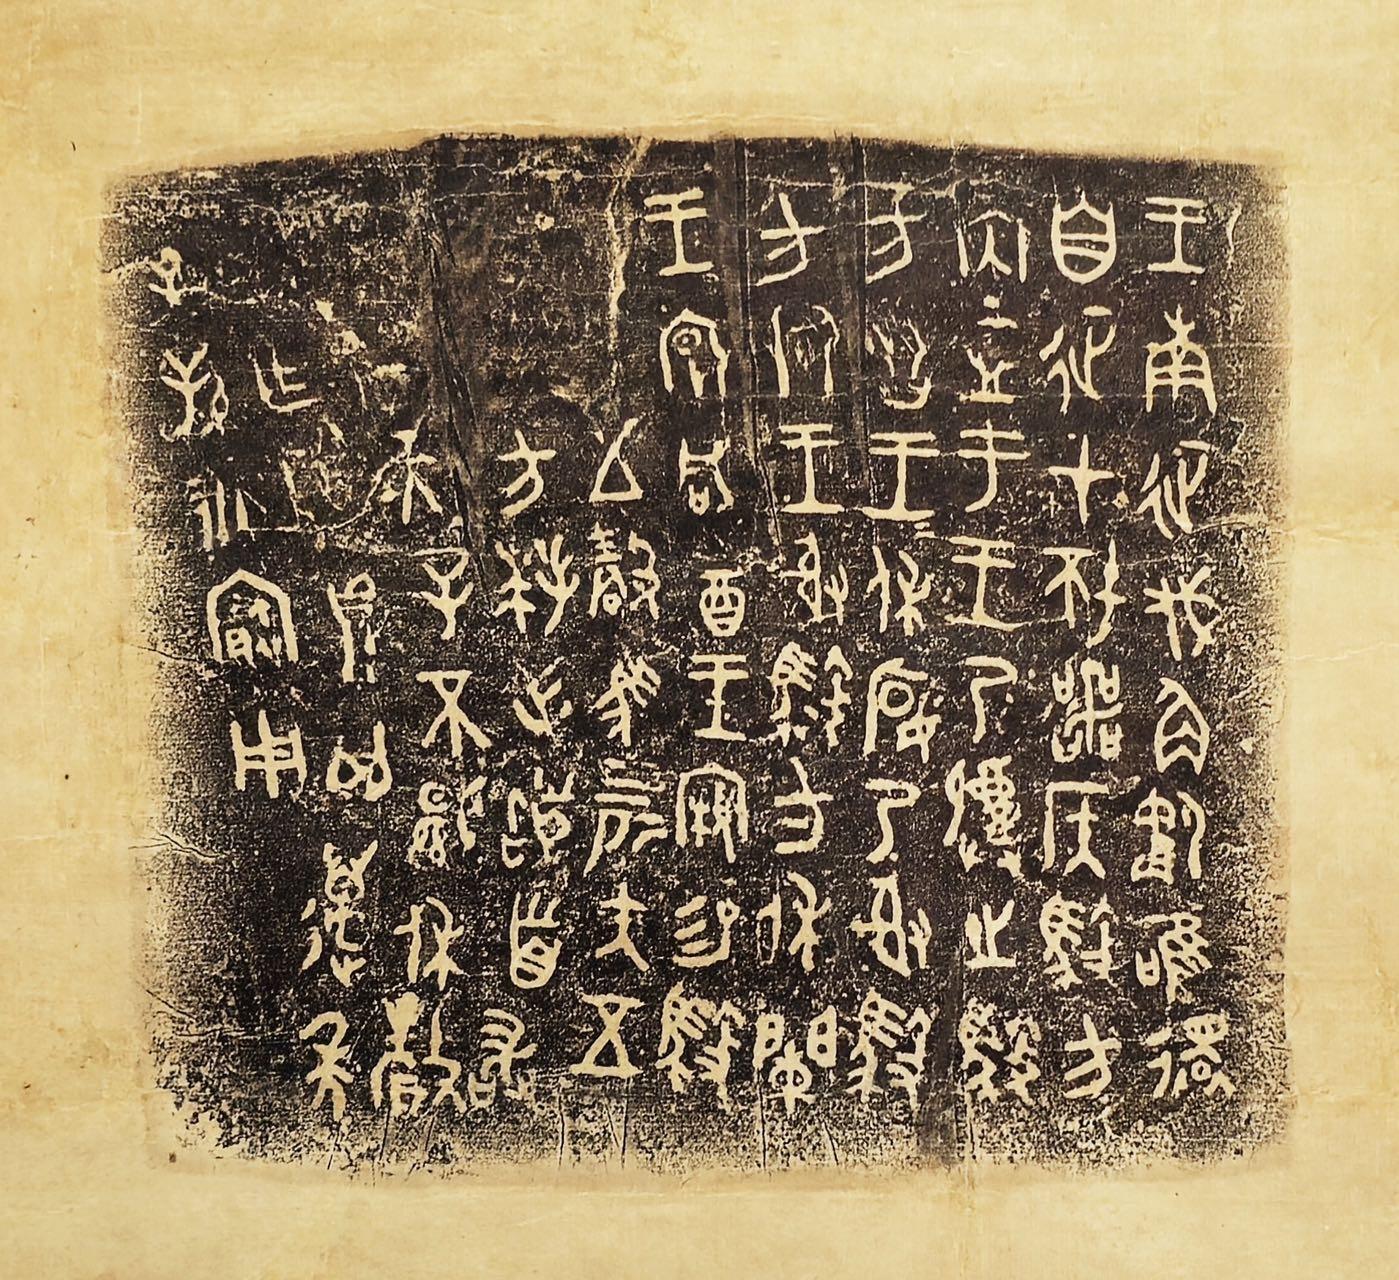 王南征伐角僪唯還
自征在坯噩侯馭方
內壺于王乃祼之馭
方侑王王休宴乃射馭
方王射馭方休闌
王宴咸酓王親易馭
五瑴馬四匹矢五
方拜手稽首敢
天子不顯休釐
乍鼎其萬年
子孫永寶用